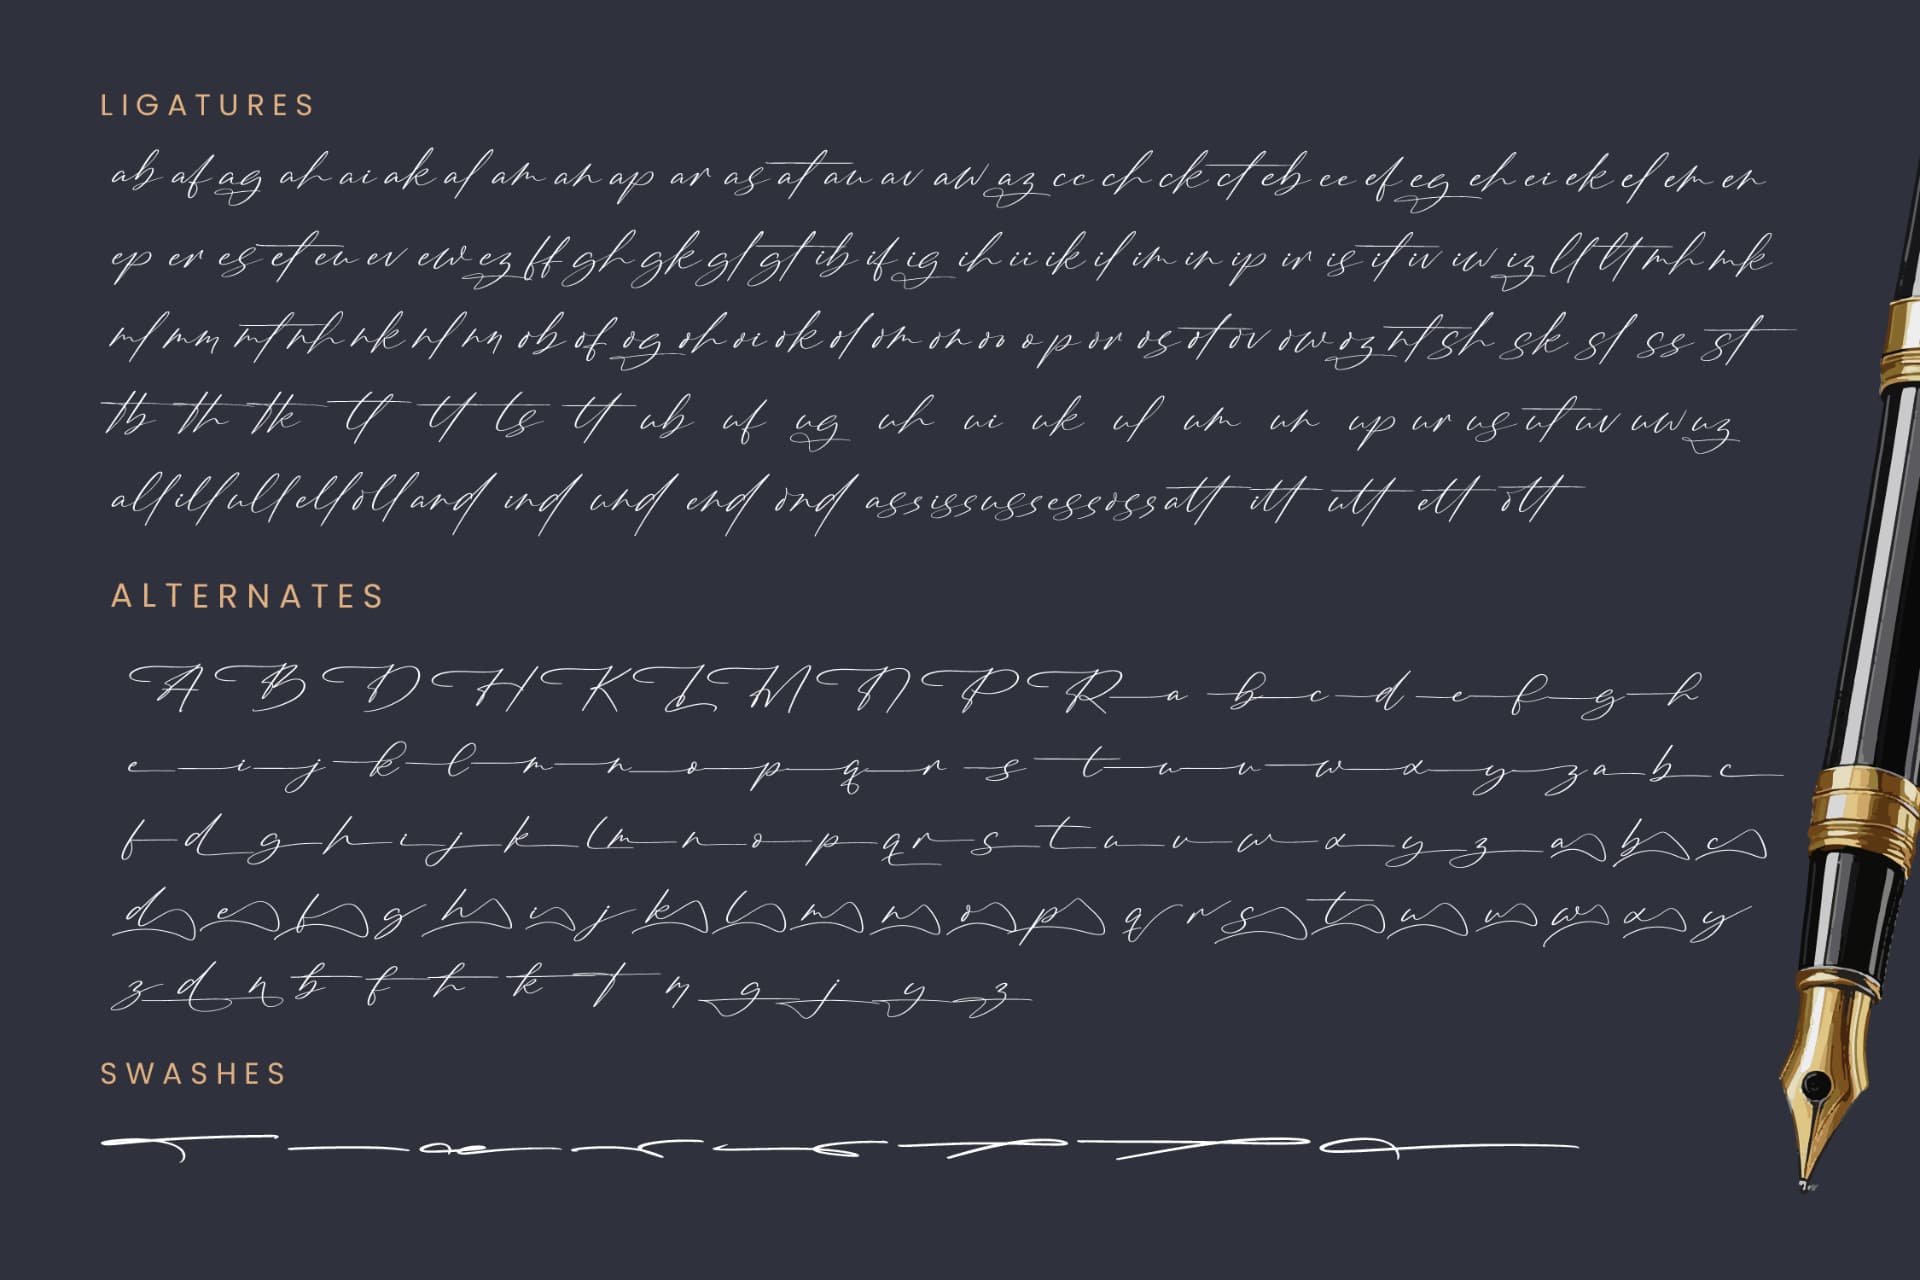 LIGATURES
ab af ag ah ai ak al am an ap ar as at au av aw az cc ch ck ct eb ee ef eg eh ei ek el em en
ep er es et eu ev ew ez ff gh gk gl gt ib if ig ih ii ik il im in ip ir is it iv iw iz ll lt mh mk
ml mm mt nh nk nl nn ob of og oh oi ok ol om on oo op or os ot ov ow oz nt sh sk sl ss st
tb th tk tl tt ts tt ub uf ug uh ui uk ul um un up ur us ut uv uw uz
all ill ull ell oll and ind und end ond ass iss uss ess oss att itt utt ett ott
ALTERNATES
A B D H K L M N P R a b c d e f g h
e i j k l m n o p q r s t u v w x y z a b c
f d g h i j k l m n o p q r s t u v w x y z a b c
d e f g h i j k l m n o p q r s t u v w x y
z d n b f h k t n g j y z
SWASHES